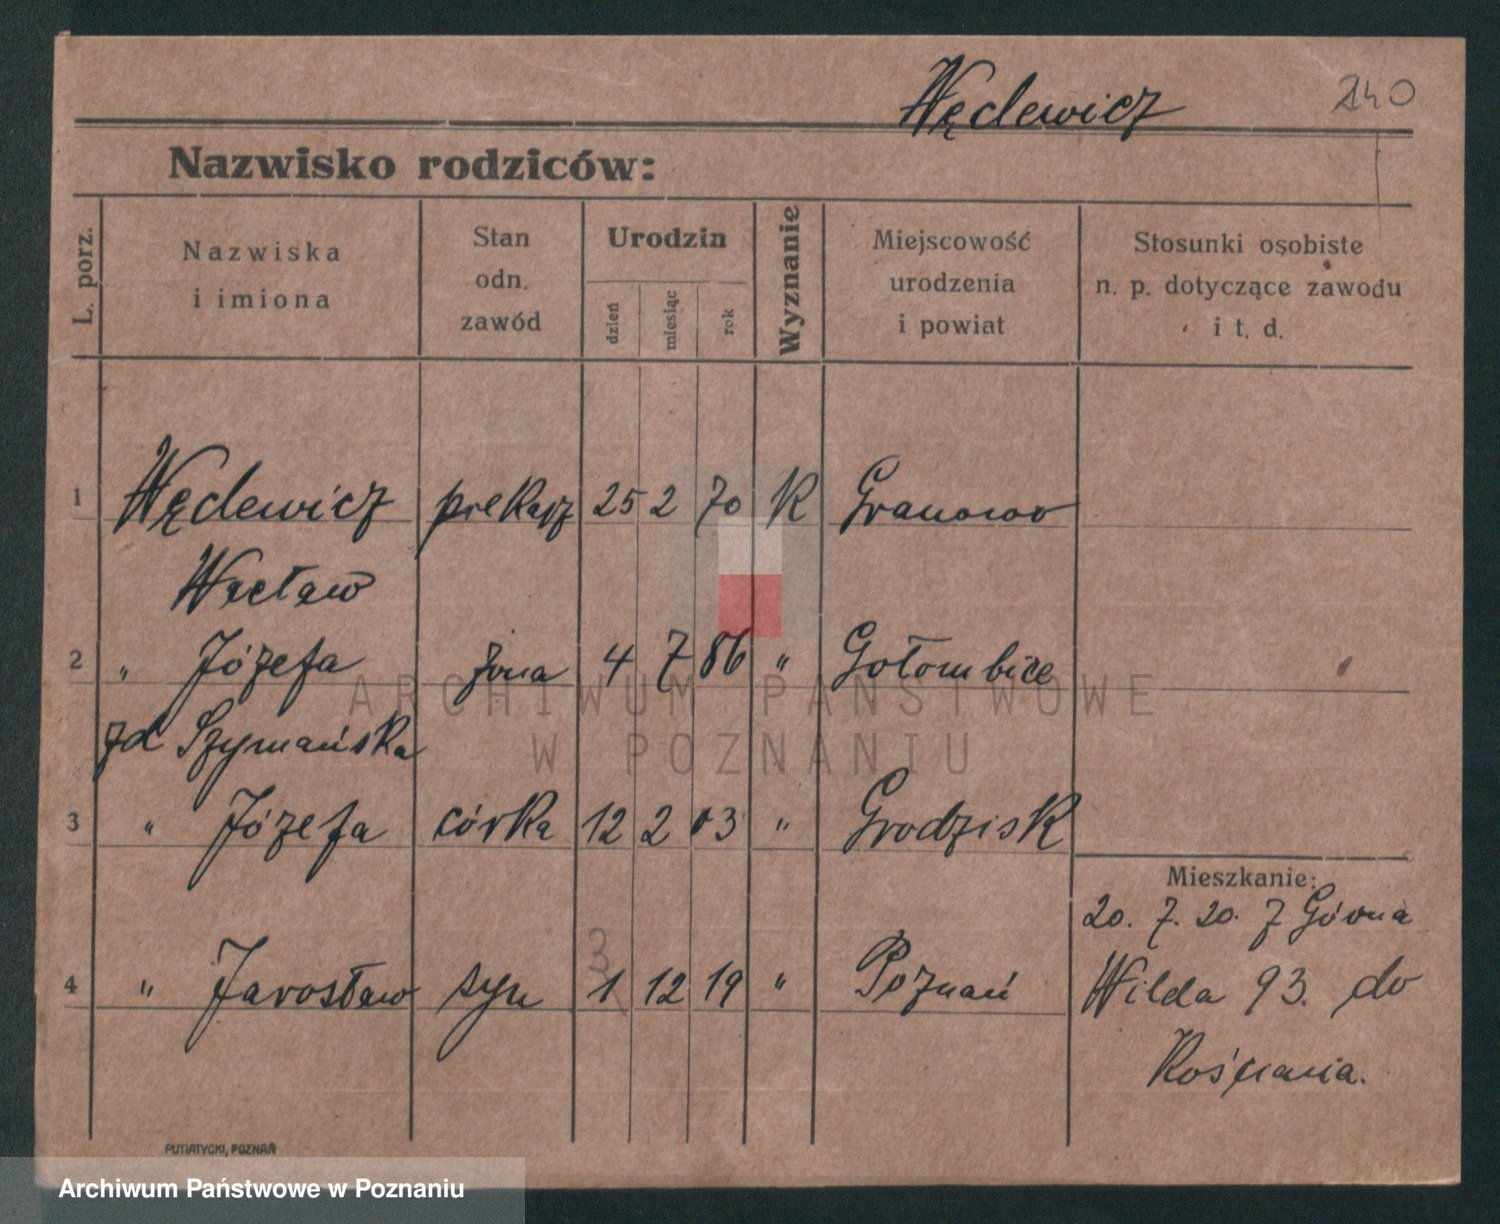 Wędewicz 240
Nazwisko rodziców:
L. porz.
Nazwiska
i imiona
Stan
odn.
zawód
Urodzin
dzień
miesiąc
rok
Wyznanie
Miejscowość
urodzenia
i powiat
Stosunki osobiste
n. p. dotyczące zawodu
i t. d.
1 Wędewicz piekarz 25 2 70 K Granowo
Wacław
2 " Józefa żona 4 7 86 " Gołombice
zd Szymańska
3 " Józefa córka 12 2 03 " Grodzisk
Mieszkanie:
20. 7. 20. z Górna
4 " Jarosław syn 1 12 19 " Poznań
3
Wilda 93. do
Kościana.
PUTIATYCKI, POZNAŃ
ARCHIWUM PAŃSTWOWE
W POZNANIU
Archiwum Państwowe w Poznaniu